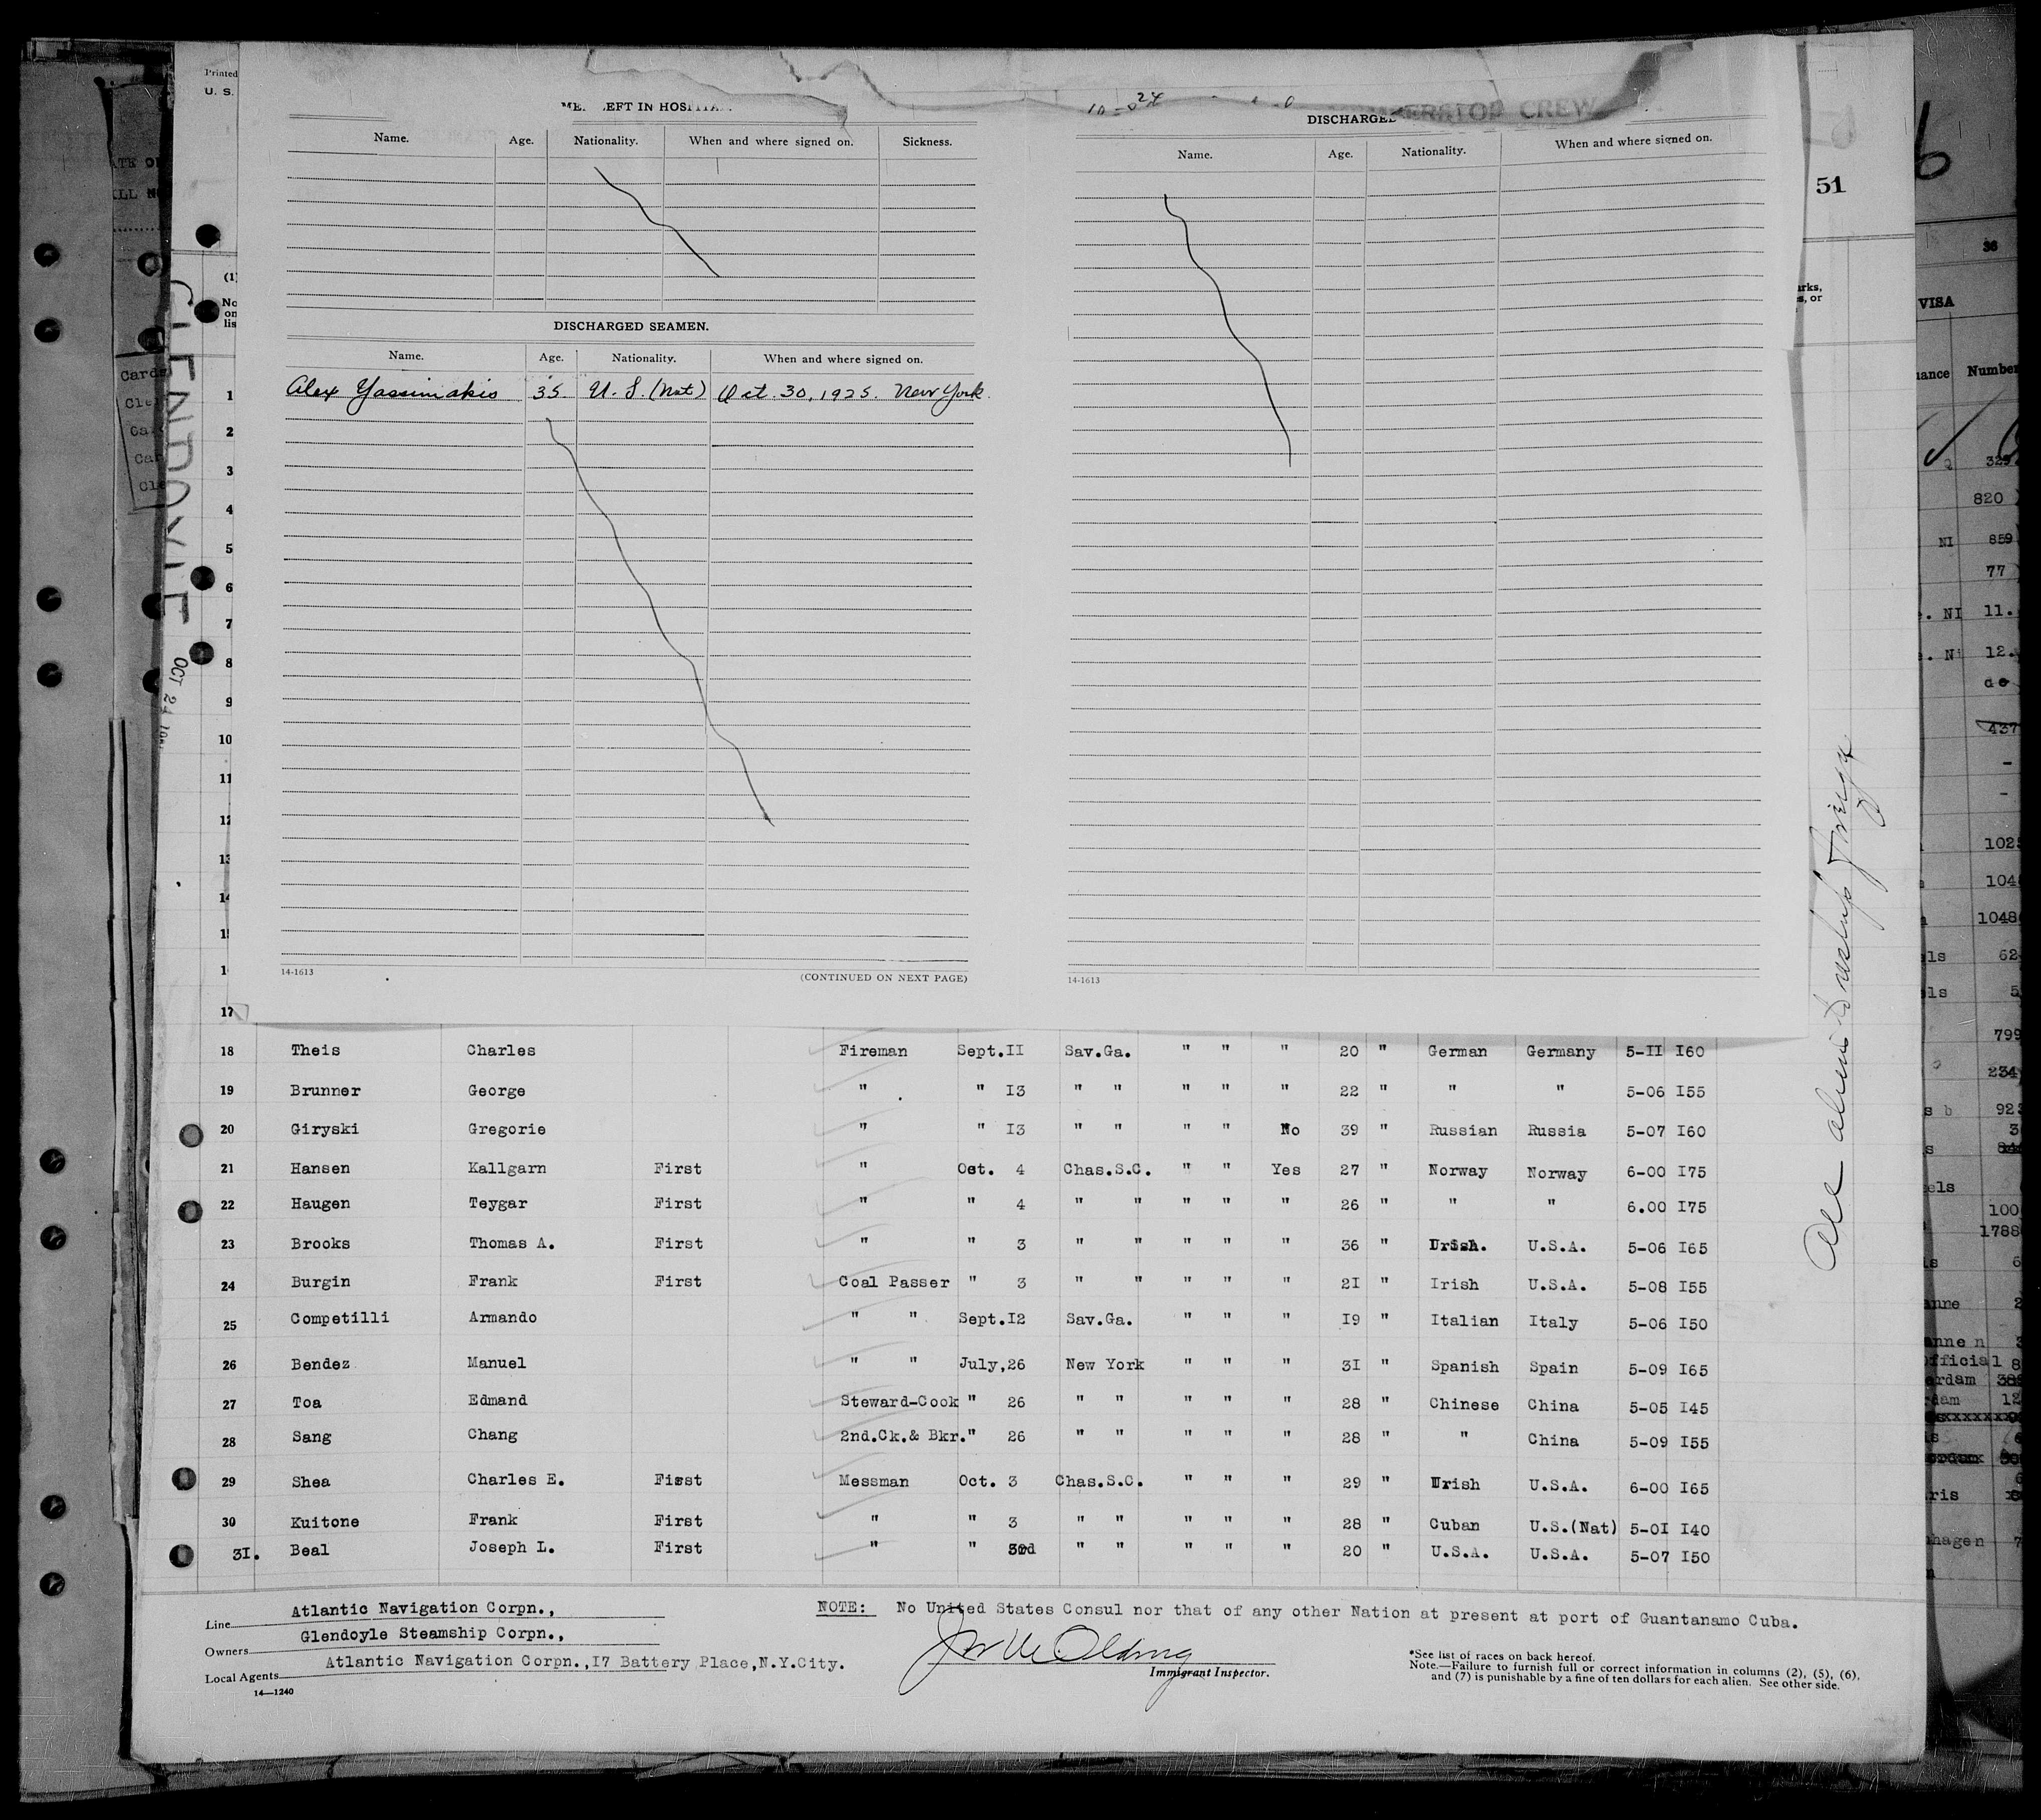 Printed
U. S.
EFT IN HOSPITA
Name. Age. Nationality. When and where signed on. Sickness.
DISCHARGED SEAMEN.
Name. Age. Nationality. When and where signed on.
Alex Yassimakis 35 U. S. (Nat) Oct. 30, 1925. New York.
14-1613
(CONTINUED ON NEXT PAGE)
24
CREW
DISCHARGED
Name. Age. Nationality. When and where signed on.
14-1613
51
GLENDOYLE
OCT 24
(1)
No
on
lis
1
2
3
4
5
6
7
8
9
10
11
12
13
14
17
18 Theis Charles Fireman Sept.II Sav.Ga. " " " 20 " German Germany 5-II I60
19 Brunner George " " I3 " " " " " 22 " " " 5-06 I55
20 Giryski Gregorie " " I3 " " " " No 39 " Russian Russia 5-07 I60
21 Hansen Kallgarn First " Oct. 4 Chas.S.C. " " Yes 27 " Norway Norway 6-00 I75
22 Haugen Teygar First " " 4 " " " " " 26 " " " 6.00 I75
23 Brooks Thomas A. First " " 3 " " " " " 36 " U.S.A. 5-06 I65
24 Burgin Frank First Coal Passer " 3 " " " " " 2I " Irish U.S.A. 5-08 I55
25 Competilli Armando " " Sept.I2 Sav.Ga. " " " I9 " Italian Italy 5-06 I50
26 Bendez Manuel " " July,26 New York " " " 3I " Spanish Spain 5-09 I65
27 Toa Edmand Steward-Cook " 26 " " " " " 28 " Chinese China 5-05 I45
28 Sang Chang 2nd.Ck.& Bkr. " 26 " " " " " 28 " " China 5-09 I55
29 Shea Charles E. First Messman Oct. 3 Chas.S.C. " " " 29 " Irish U.S.A. 6-00 I65
30 Kuitone Frank First " " 3 " " " " " 28 " Cuban U.S.(Nat) 5-0I I40
3I. Beal Joseph L. First " " 3rd " " " " " 20 " U.S.A. U.S.A. 5-07 I50
Line Atlantic Navigation Corpn.,
Owners Glendoyle Steamship Corpn.,
Local Agents Atlantic Navigation Corpn.,I7 Battery Place,N.Y.City.
14—1240
NOTE: No United States Consul nor that of any other Nation at present at port of Guantanamo Cuba.
Immigrant Inspector.
*See list of races on back hereof.
Note.—Failure to furnish full or correct information in columns (2), (5), (6),
and (7) is punishable by a fine of ten dollars for each alien. See other side.
All aliens to reship foreign
36
VISA
Number
329
820
NI 859
77
NI 11.
12.
437
62
799
234